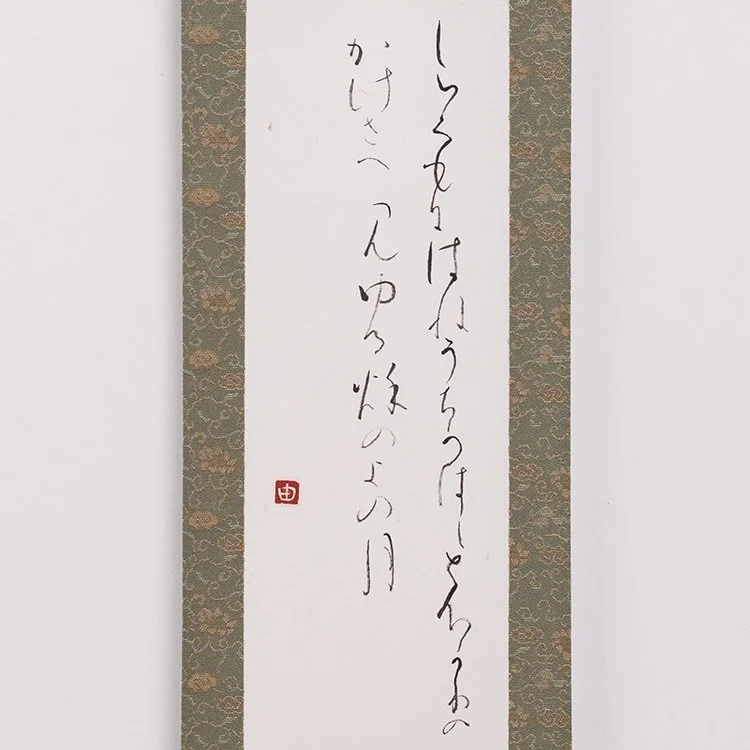 しらくもにはねうちかはしとふかりの
かけさへみゆる秋のよの月
由